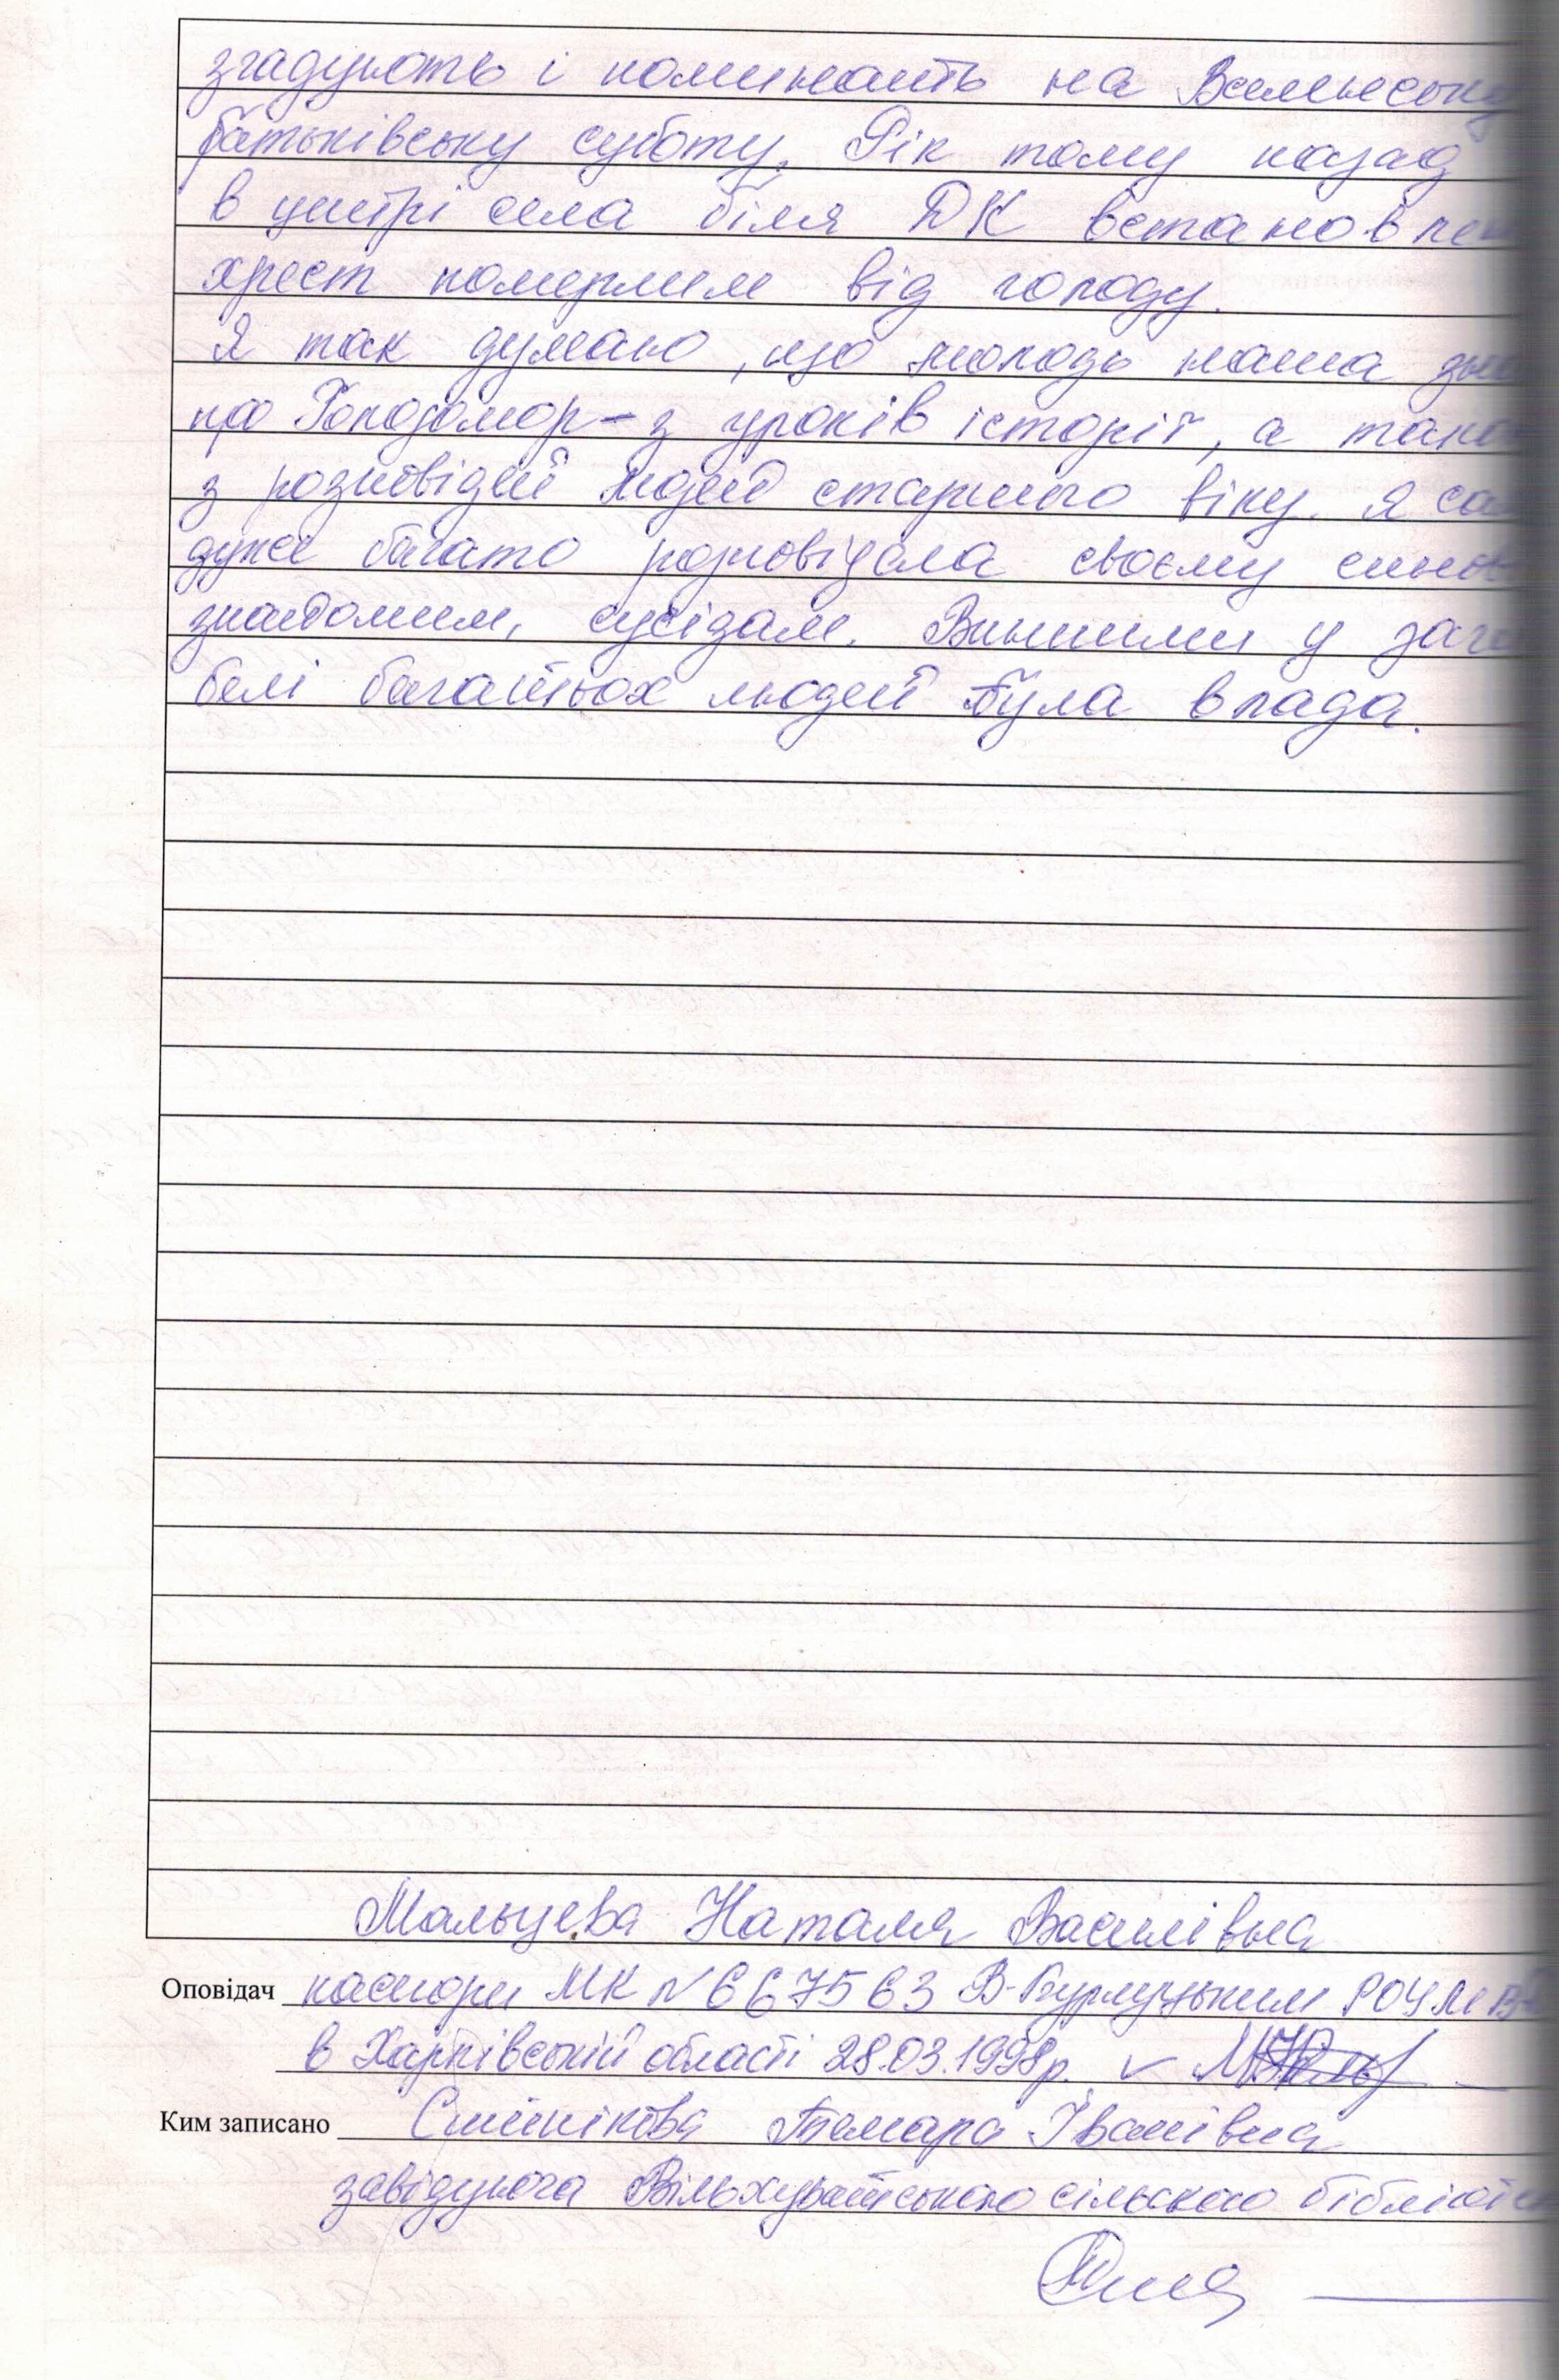 згадують і поминають на Вселенську
батьківську суботу. Рік тому назад
в центрі села біля ДК встановлен
хрест померлим від голоду.
Я так думаю, що молодь наша зна
про Голодомор - з уроків історії, а тако
з розповідей людей старшого віку. Я са
дуже багато розповідала своєму синов
знайомим, сусідам. Винними у заги
белі багатьох людей була влада.
Мальцева Наталя Василівна
Оповідач паспорт МК № 667563 В-Бурлуцьким РОУМВ
в Харківській області 28.03.1998р. v
Ким записано Тамара Іванівна
завідуюча Вільхуватською сільською бібліоте